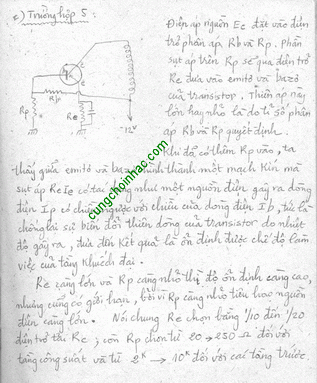 c) Trường hợp 5 :
Điện áp nguồn Ec đặt vào điện
trở phân áp Rb và Rp. Phần
sụt áp trên Rp sẽ qua điện trở
Re đưa vào emitơ và bazơ
của transistor. Thiên áp này
lớn hay nhỏ là do tỉ số phân
áp Rb và Rp quyết định.
Khi đã có thêm Rp vào, ta
thấy giữa emitơ và bazơ hình thành một mạch kín mà
sụt áp ReIe có tác dụng như một nguồn điện gây ra dòng
điện Ip có chiều ngược với chiều của dòng điện Ib, tức là
chống lại sự biến đổi thiên dòng của transistor do nhiệt
độ gây ra, đưa đến kết quả là ổn định được chế độ làm
việc của tầng khuếch đại.
Re càng lớn và Rp càng nhỏ thì độ ổn định càng cao,
nhưng cũng có giới hạn, bởi vì Rp càng nhỏ tiêu hao nguồn
điện càng lớn. Nói chung Re chọn bằng 1/10 đến 1/20
điện trở tải Rc ; còn Rp chọn từ 20 → 250 Ω đối với
tầng công suất và từ 2K → 10K đối với các tầng trước.
Rp
Rb
Re
b
c
e
-12V
cungchoinhac.com